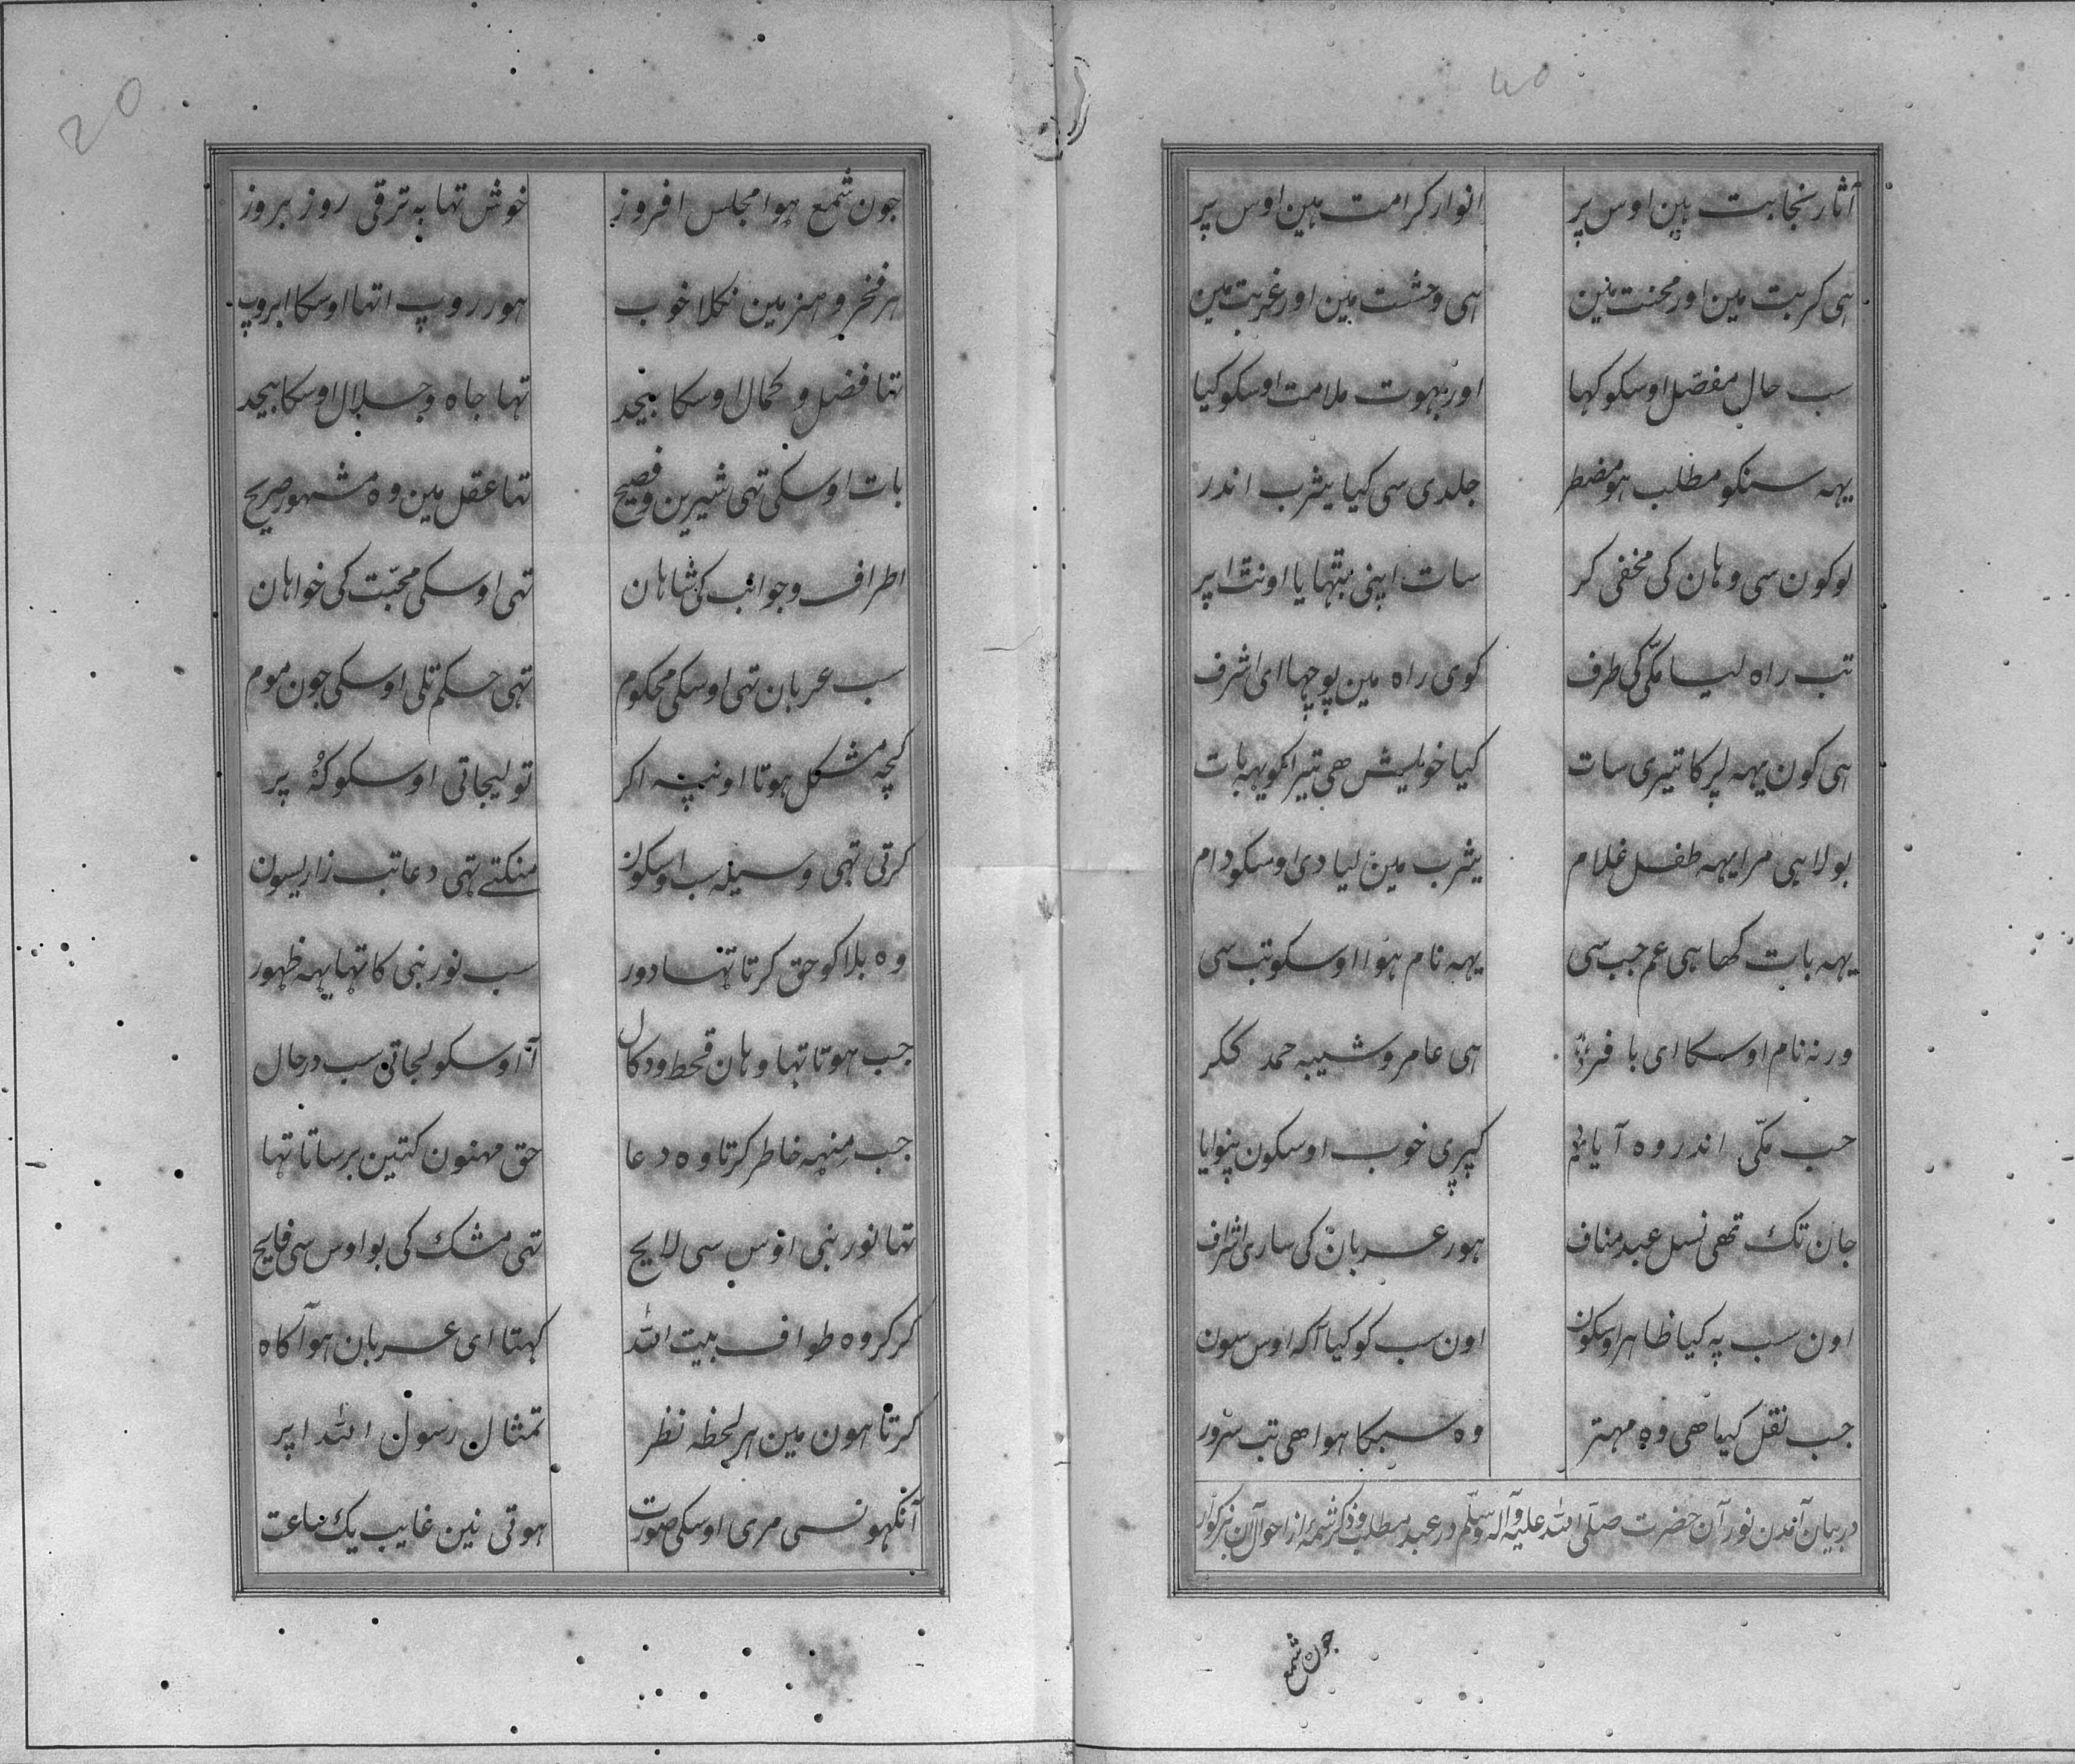 آثار نجابت ہین اوس پر انوار کرامت ہین اوس پر
ہی کربت مین اور محنت مین ہی وحشت مین اور غربت مین
سب حال مفصّل اوسکو کہا اور بہوت ملامت اوسکو کیا
یہہ سنکو مطلب ہو مضطر جلدی سی کیا یثرب اندر
لوکون سی وہان کی مخفی کر سات اپنی بتہایا اونت اپر
تب راہ لیا مکّی کی طرف کوی راہ مین پوچہا ای اشرف
ہی کون یہہ لرکا تیری سات کیا خویش ھی تیرا کہو یہہ بات
بولا ہی مرا یہہ طفل غلام یثرب مین لیا دی اوسکو دام
یہہ بات کھا ہی عم جب سی یہہ نام ہوا اوسکو تب سی
ورنہ نام اوسکا ای با فر ہی عامر و شیبہ حمد ککر
جب مکّی اندر وہ آیا کپری خوب اوسکون پنوایا
جان تک تھی نسل عبد مناف ہور عربان کی ساری اشراف
اون سب پہ کیا ظاہر اوسکون اون سب کو کیا آکہ اوس سون
جب نقل کیا ھی وہ مہتر وہ سبکا ہوا ھی تب سرور
در بیان آمدن نور آن حضرت صلّی اللہ علیہ وآلہ وسلّم در عبد مطلب و ذکر شمہ از احوال آن بزرکوار
جون شمع
20
جون شمع ہوا مجلس افروز خوش تہا بہ ترقی روز بروز
ہر فخر و ہنر مین نکلا خوب ہور روپ اتہا اوسکا ابروپ
تہا فضل و کمال اوسکا بیحد تہا جاہ و جلال اوسکا بیحد
بات اوسکی تہی شیرین و فصیح تہا عقل مین وہ مشہور صریح
اطراف و جوانب کی شاہان تہی اوسکی محبّت کی خواہان
سب عربان تہی اوسکی محکوم تہی حکم تلی اوسکی جون موم
کچہ مشکل ہوتا اونپہ اکر تو لیجاتی اوسکو کہ پر
کرتی تہی وسیلہ سب اوسکون منکتے تہی دعا تب زاری سون
وہ بلا کو حق کرتا تہا دور سب نور نبی کا تہا یہہ ظہور
جب ہوتا تہا وہان قحط و دکال آ اوسکو لجاتی سب در حال
جب منہہ خاطر کرتا وہ دعا حق مہنون کتین برساتا تہا
تہا نور نبی اوس سی لایح تہی مشک کی بو اوس سی فایح
کر کر وہ طواف بیت اللہ کہتا ای عربان ہو آکاہ
کرتا ہون مین ہر لحظہ نظر تمثال رسول اللہ اپر
آنکہونسی مری اوسکی صورت ہوتی نین غایب یک ساعت